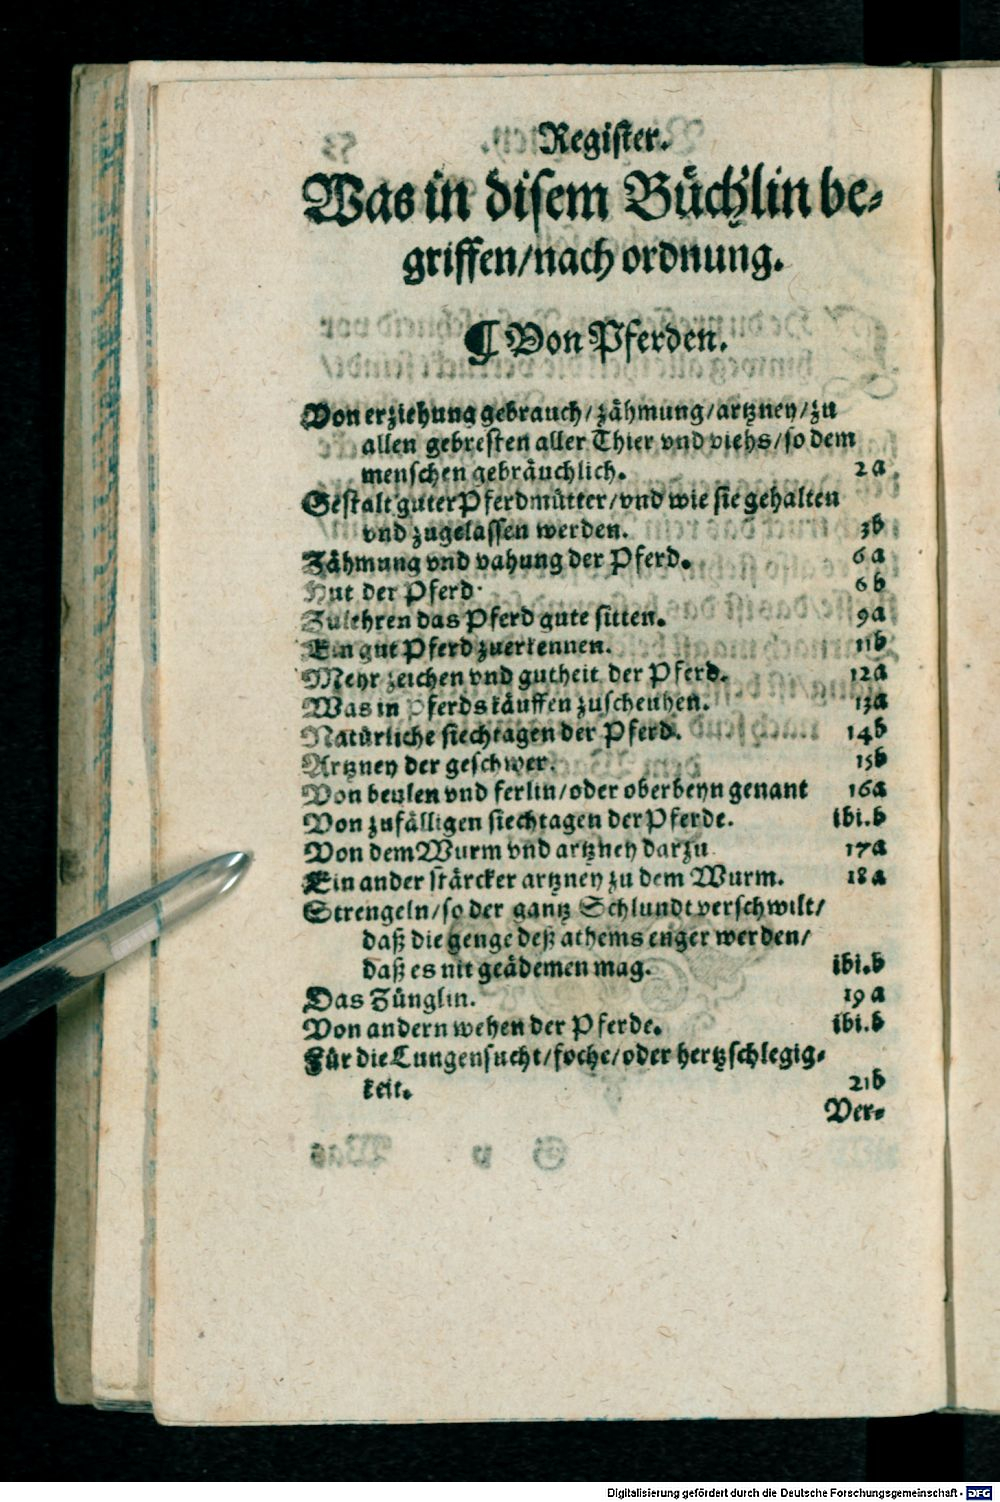 Register.
Was in disem Büchlin be-
griffen/nach ordnung.
¶ Von Pferden.
Von erziehung gebrauch/zähmung/artzney/zu
allen gebresten aller Thier vnd viehs/so dem
menschen gebräuchlich. 2a
Gestalt guter Pferdmütter/vnd wie sie gehalten
vnd zugelassen werden. 3b
Zähmung vnd vahung der Pferd. 6a
Hut der Pferd. 6b
Zulehren das Pferd gute sitten. 9a
Ein gut Pferd zuerkennen. 11b
Mehr zeichen vnd gutheit der Pferd. 12a
Was in Pferds käuffen zuscheuhen. 13a
Natürliche siechtagen der Pferd. 14b
Artzney der geschwer. 15b
Von beulen vnd ferlin/oder oberbeyn genant 16a
Von zufälligen siechtagen der Pferde. ibi.b
Von dem Wurm vnd artzney darzu 17a
Ein ander stärcker artzney zu dem Wurm. 18a
Strengeln/so der gantz Schlundt verschwilt/
daß die genge deß athems enger werden/
daß es nit geädemen mag. ibi.b
Das Zünglin. 19a
Von andern wehen der Pferde. ibi.b
Für die Lungensucht/foche/oder hertzschlegig-
keit. 21b
Ver-
Digitalisierung gefördert durch die Deutsche Forschungsgemeinschaft - DFG